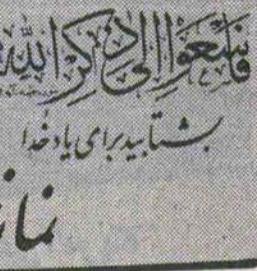 فَاسْعَوْا إِلَىٰ ذِكْرِ اللَّهِ
بشتابید برای یاد خدا